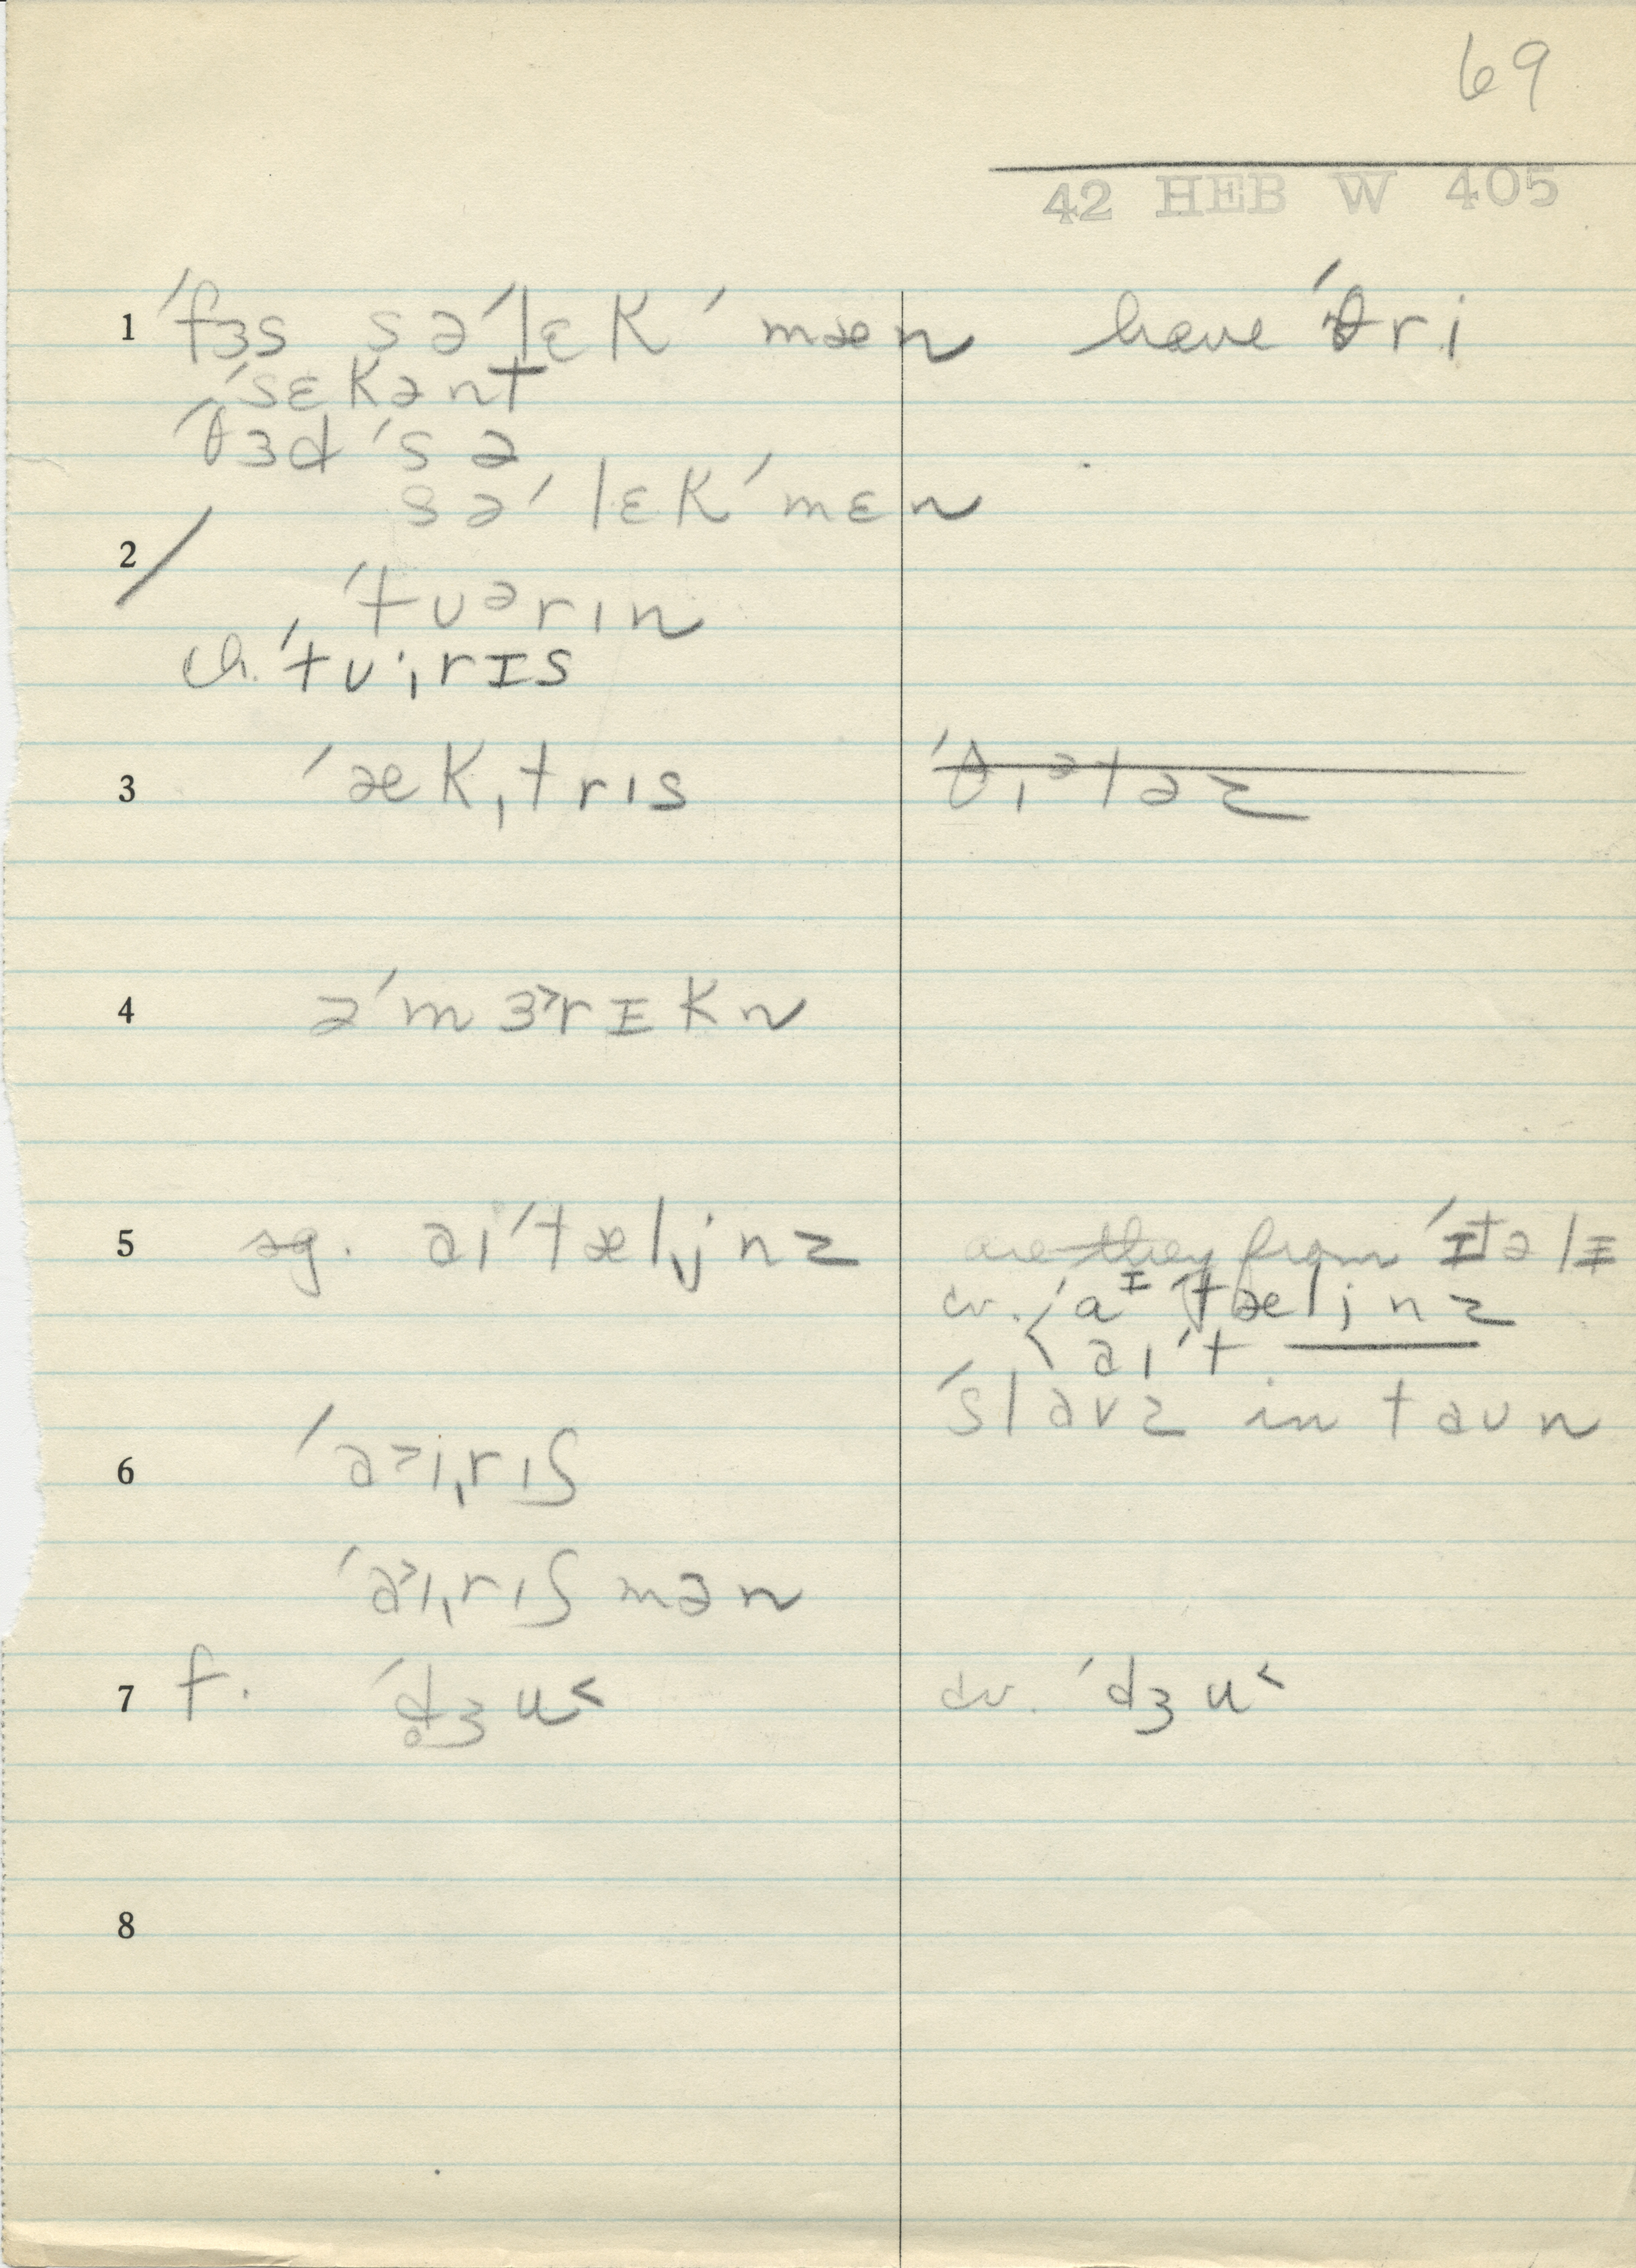 69
42 HEB W 405
1 ˈfɜs səˈlɛkˈmæn have ˈθri
ˈsɛkənt
ˈθɜd ˈsə
səˈlɛkˈmɛn
2
ˈtʊərɪn
ch. ˈtʊˌɪrɪs
3 ˈækˌtrɪs ˈθɪətəz
4 əˈmɜ˃rɪkn
5 sg. aɪˈtæljnz are they from ˈɪtəlɪ
cv. ˈaɪˈtæljnz
aɪˈt
ˈslavz in taun
6 ˈa˃ɪˌrɪʃ
ˈa˃ɪˌrɪʃmən
7 f. ˈd̥ʒu˂ cv. ˈdʒu˂
8